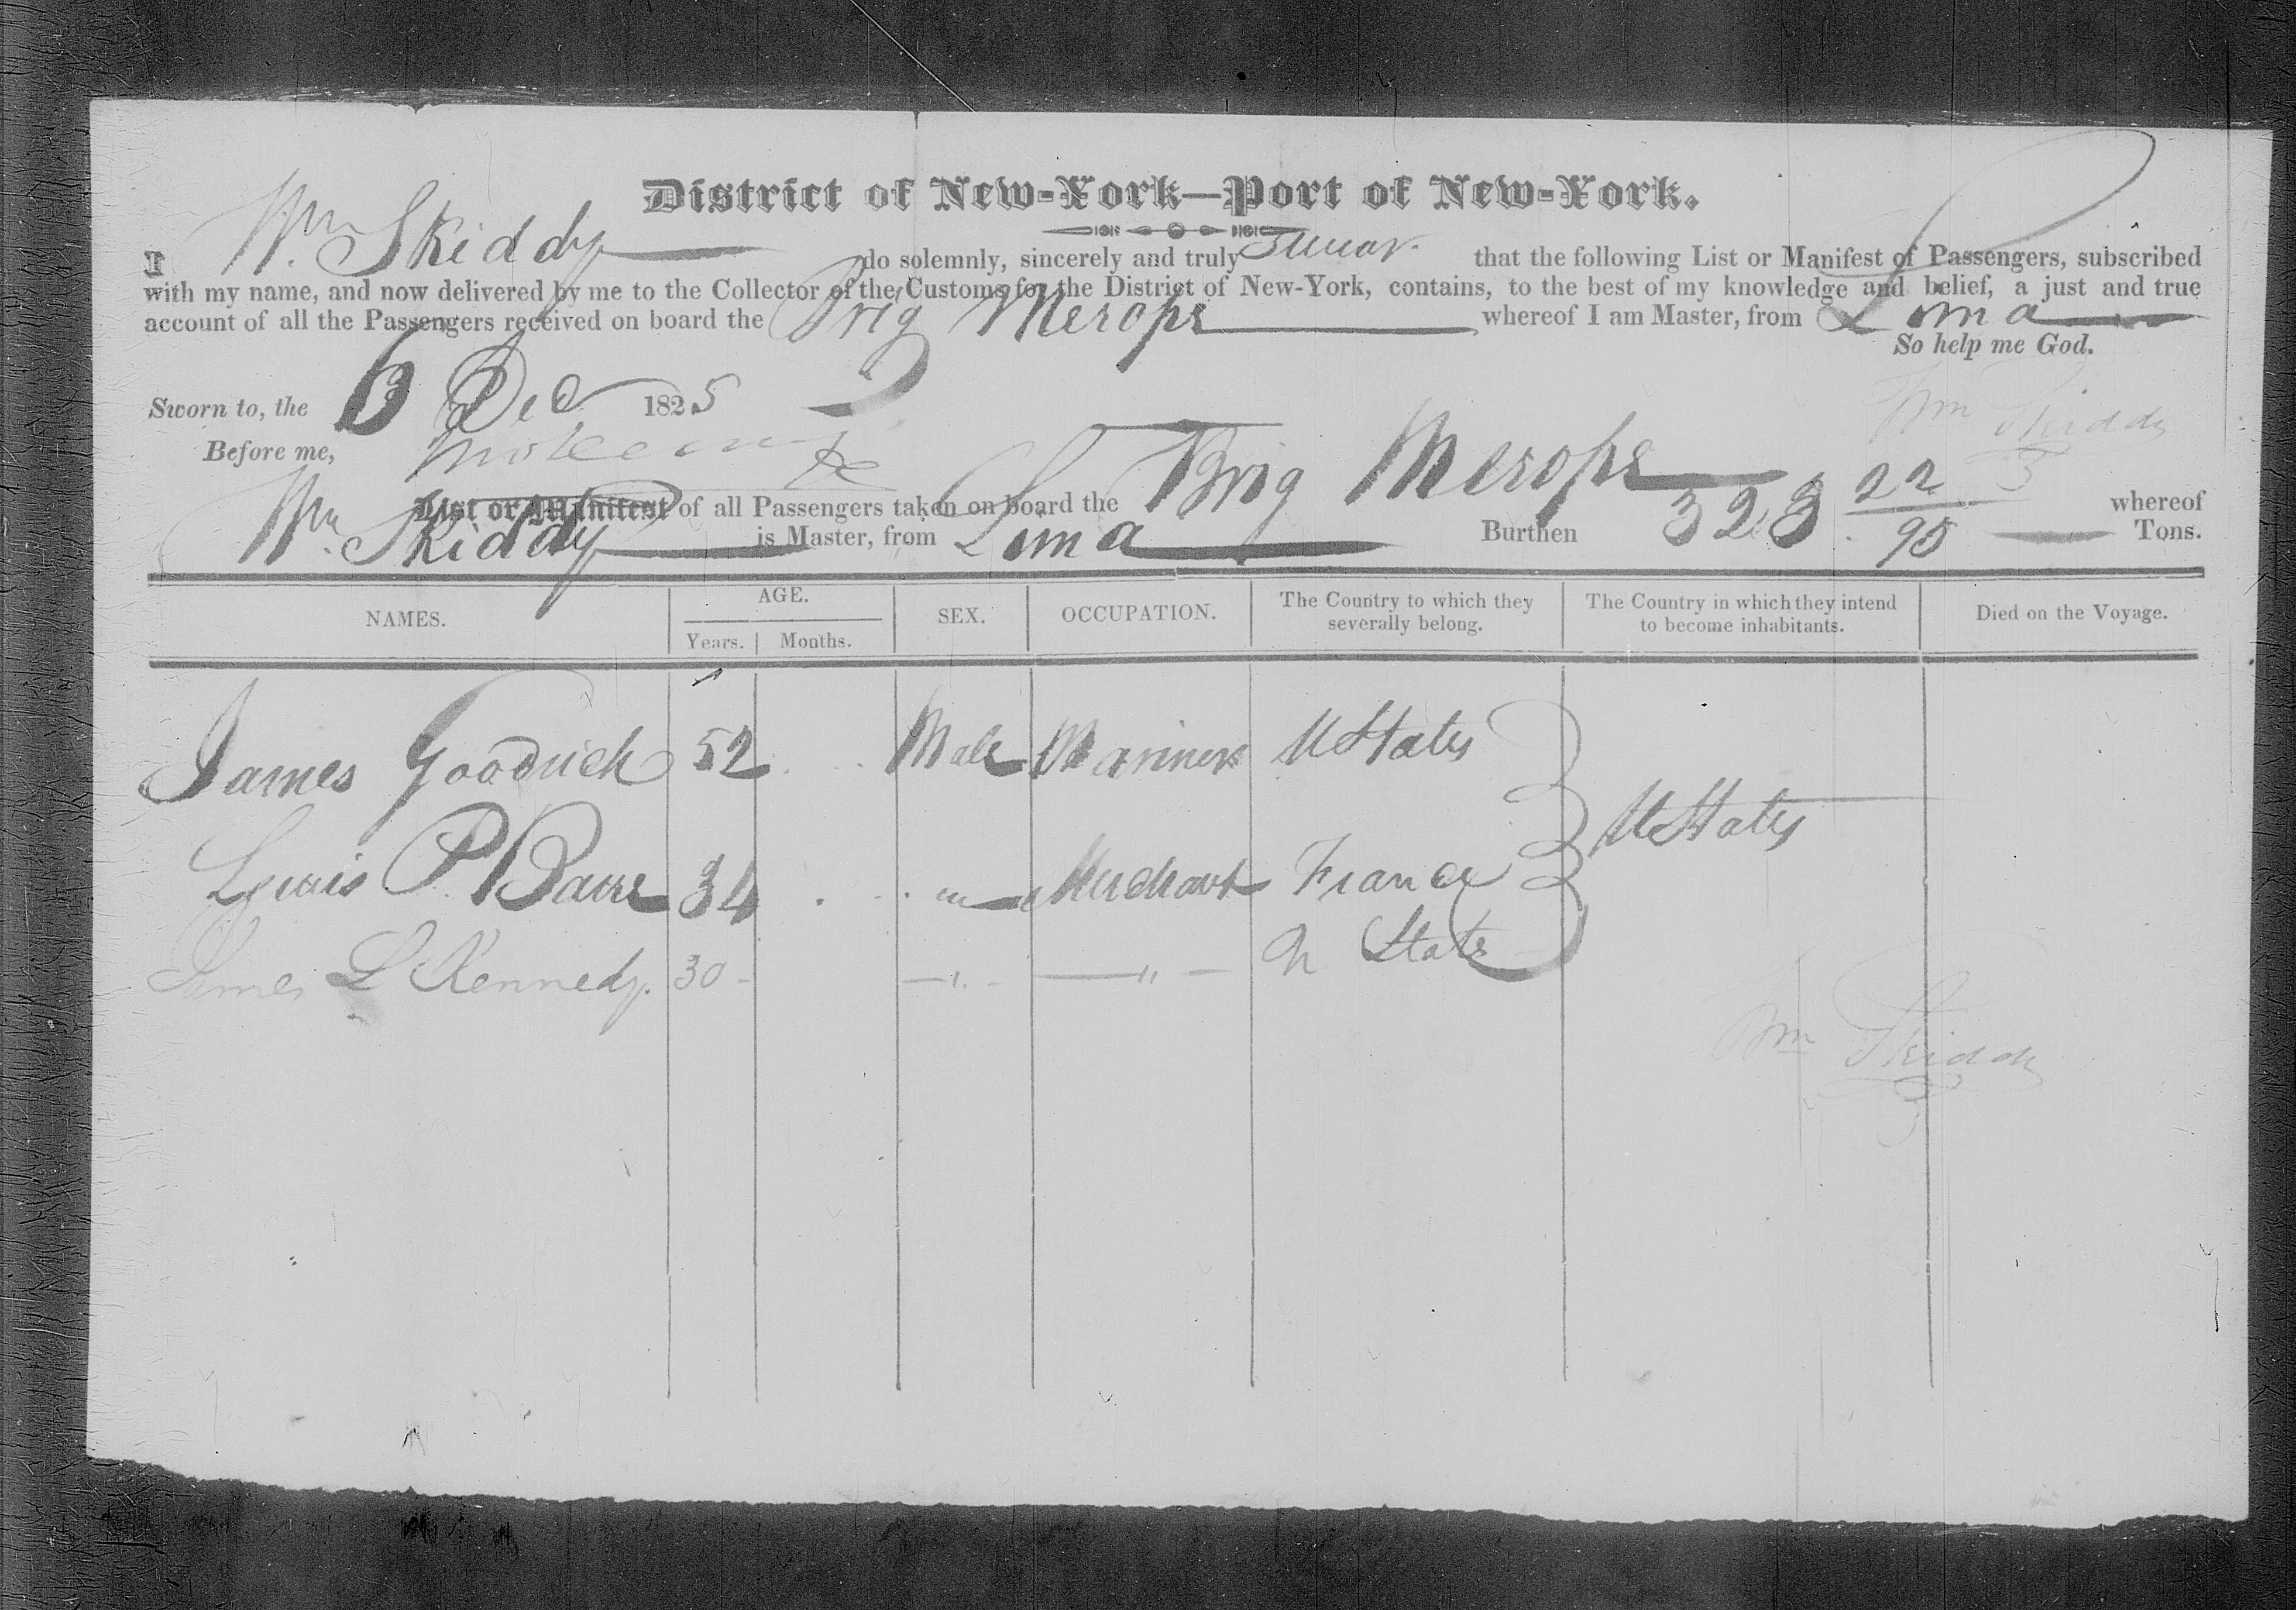 District of New-York—Port of New-York.
I Wm Skiddy do solemnly, sincerely and truly swear that the following List or Manifest of Passengers, subscribed
with my name, and now delivered by me to the Collector of the Customs for the District of New-York, contains, to the best of my knowledge and belief, a just and true
account of all the Passengers received on board the Brig Merope whereof I am Master, from Lima
So help me God.
Sworn to, the 6 Dec 1825
Wm Skiddy
Before me,
List or Manifest of all Passengers taken on board the Brig Merope whereof
Wm Skiddy is Master, from Lima Burthen 323 22/95 Tons.
NAMES. AGE. Years. Months. SEX. OCCUPATION. The Country to which they severally belong. The Country in which they intend to become inhabitants. Died on the Voyage.
James Goodrich 52 Male Mariner U States
U States
Lewis P 34 " Merchant France
James L Kennedy. 30 - " " U State
Wm Skiddy